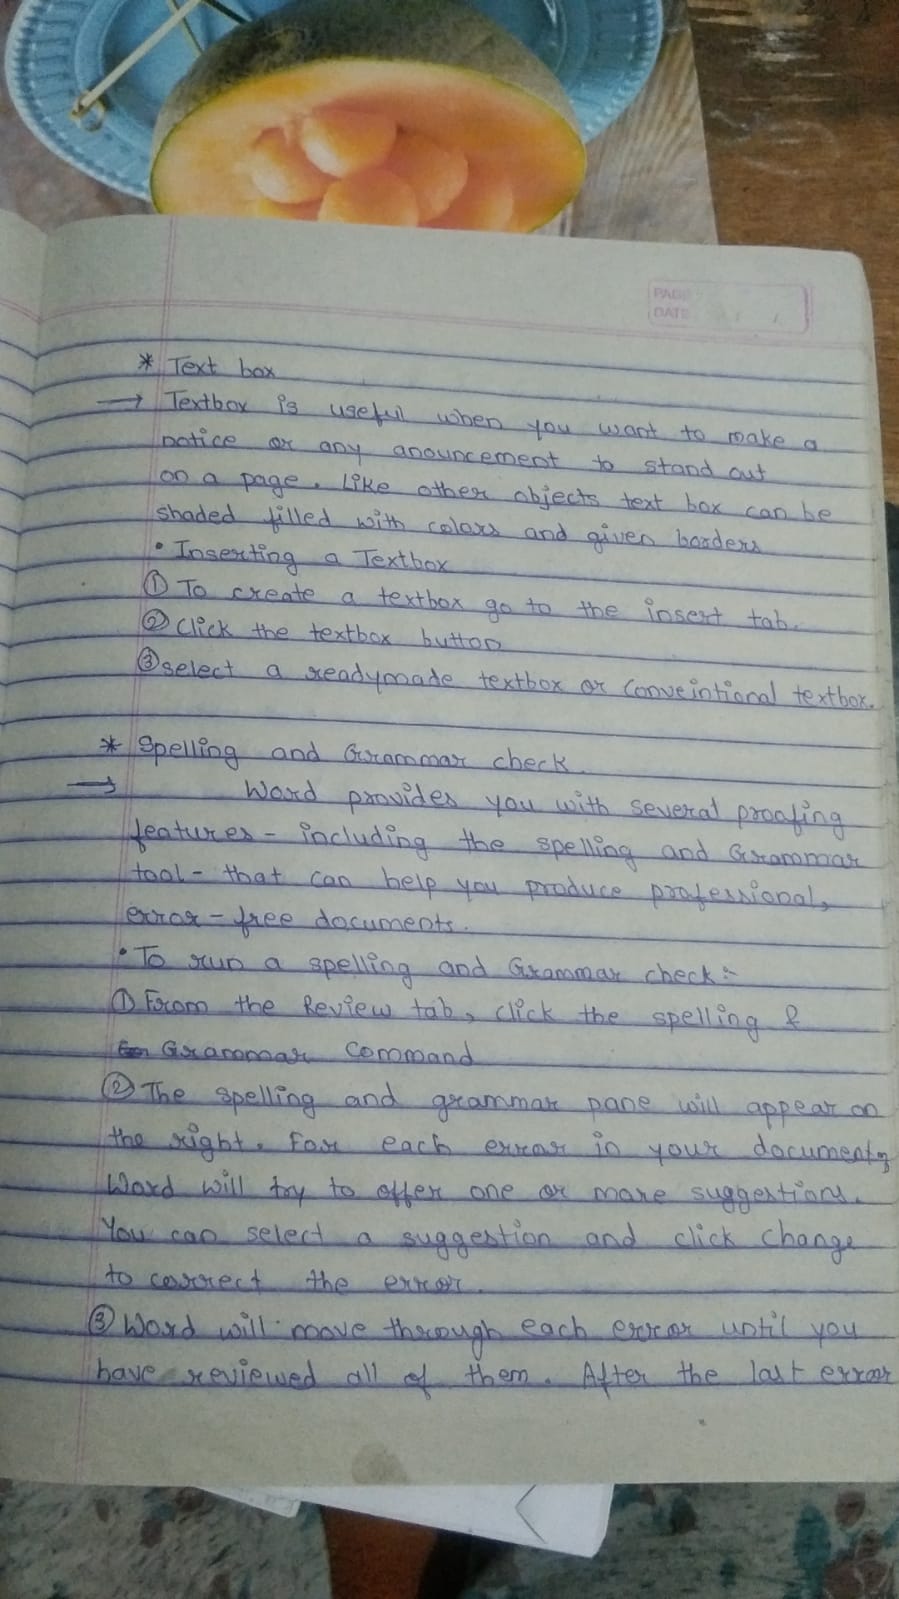 PAGE
DATE / /
* Text box
→ Textbox is useful when you want to make a
notice or any anouncement to stand out
on a page. Like other objects text box can be
shaded filled with colors and given borders
• Inserting a Textbox
① To create a textbox go to the insert tab.
② Click the textbox button
③ select a readymade textbox or Conveintional textbox.
* Spelling and Grammar check.
→ Word provides you with several proofing
features - including the spelling and Grammar
tool - that can help you produce professional,
error - free documents.
• To run a spelling and Grammar check :-
① From the Review tab, click the spelling &
Grammar Command
② The spelling and grammar pane will appear on
the right. For each error in your document,
Word will try to offer one or more suggestions.
You can select a suggestion and click change
to correct the error.
③ Word will move through each error until you
have reviewed all of them. After the last error